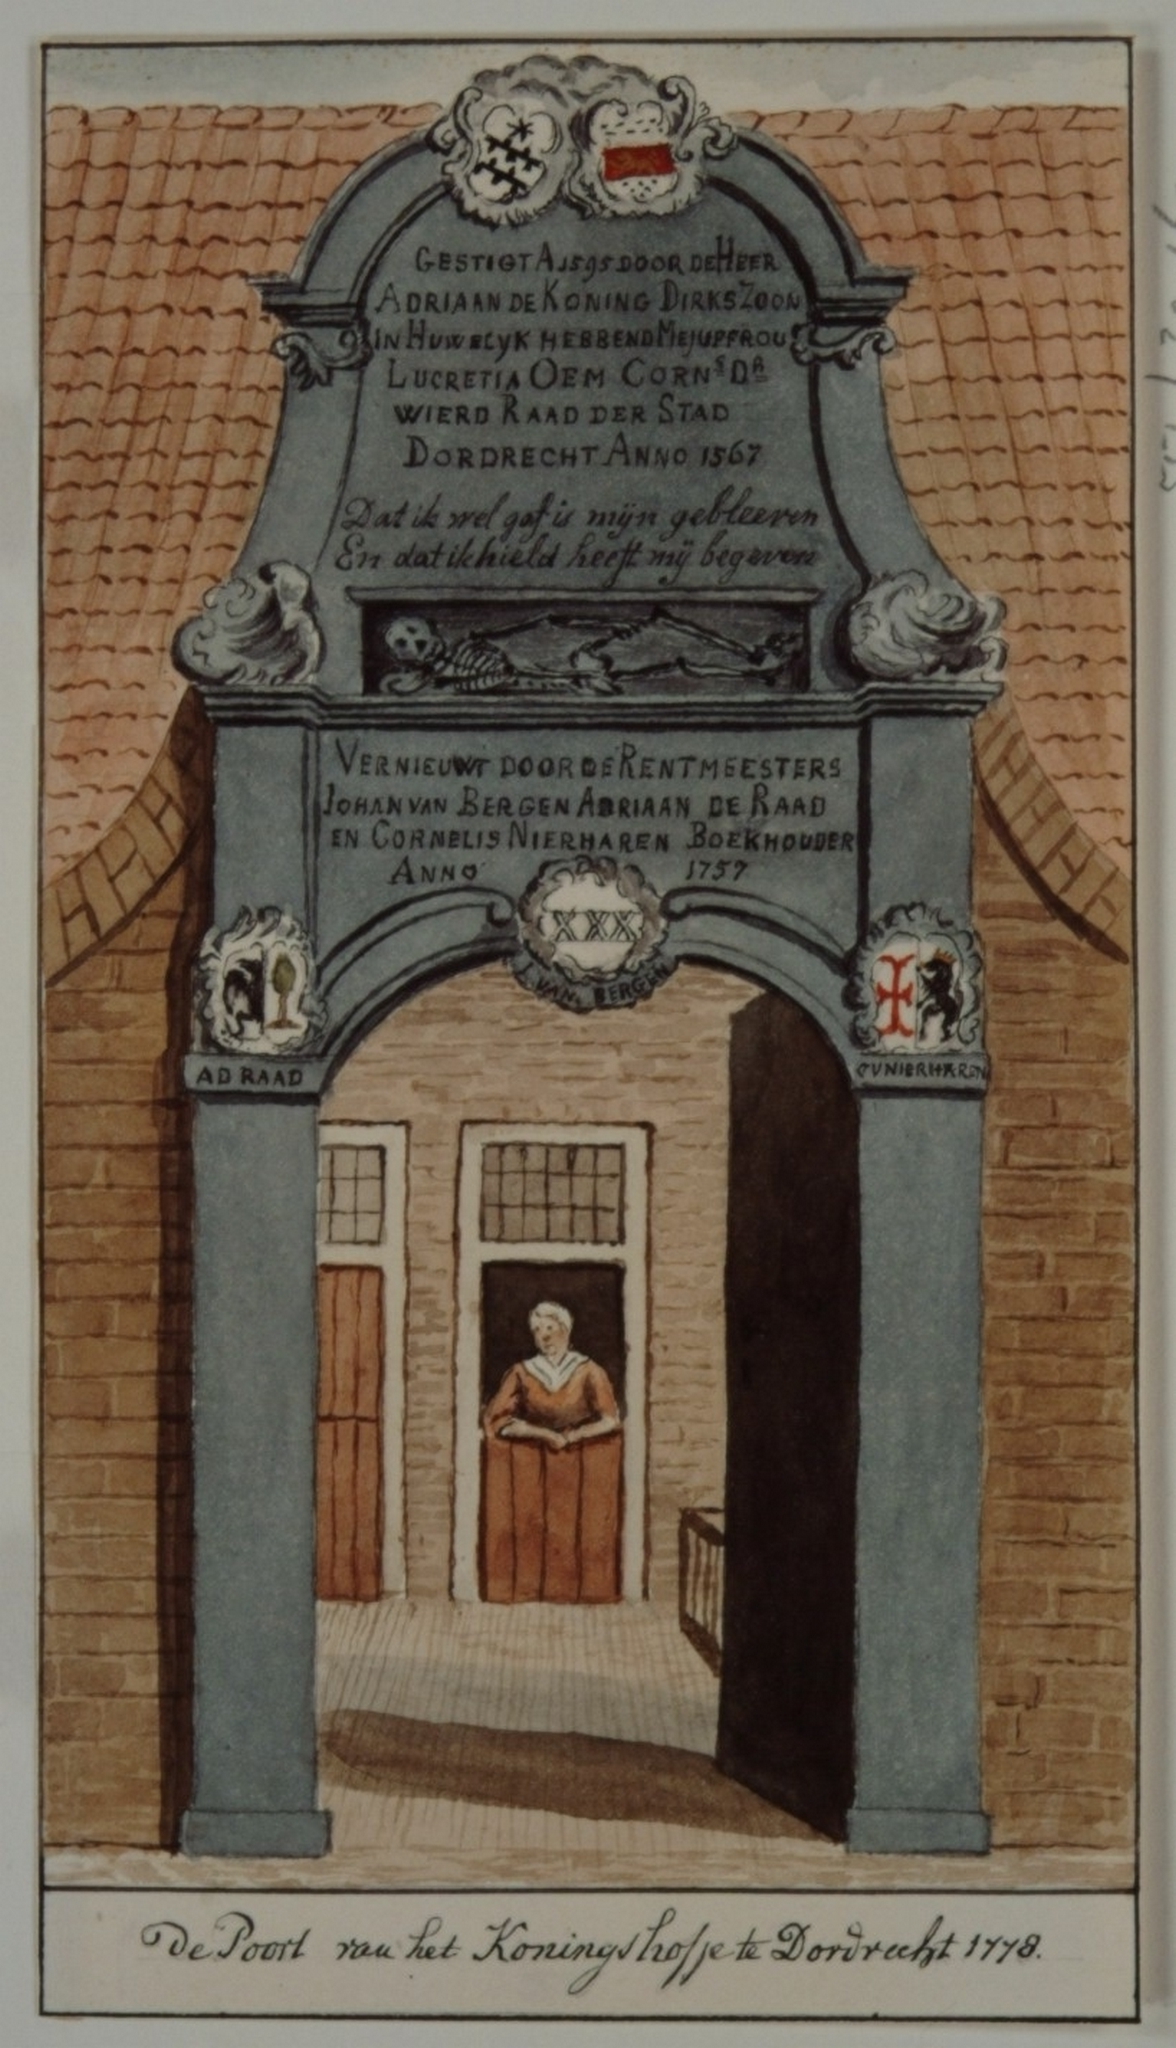 GESTIGT A 1595 DOOR DE HEER
ADRIAAN DE KONING DIRKSZOON
IN HUWELYK HEBBEND MEJUFFROU
LUCRETIA OEM CORNS DR
WIERD RAAD DER STAD
DORDRECHT ANNO 1567
Dat ik wel gaf is mijn gebleeven
En dat ik hield heeft mij begeven
VERNIEUWT DOOR DE RENTMEESTERS
JOHAN VAN BERGEN ADRIAAN DE RAAD
EN CORNELIS NIERHAREN BOEKHOUDER
ANNO 1757
XXX
J. VAN BERGEN
AD RAAD
CV NIERHAREN
De Poort van het Koningshofje te Dordrecht 1778.